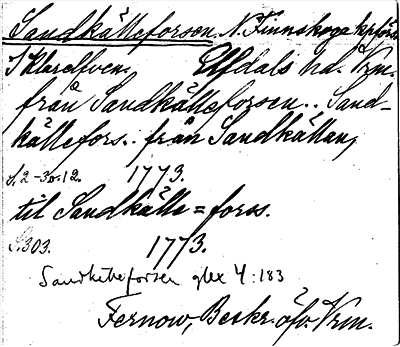 Sandkälleforsen. N. Finnskoga kpförs.
I Klarelfven. Elfdals hd. Vrm.
från Sandkälleforsen.. Sand-
källefors.. från Sandkällan,
S. 2-30.12. 1773.
til Sandkälle=forss.
S. 303. 1773.
Sandkälleforsen glex 4:183
Fernow, Beskr. öfv. Vrm.